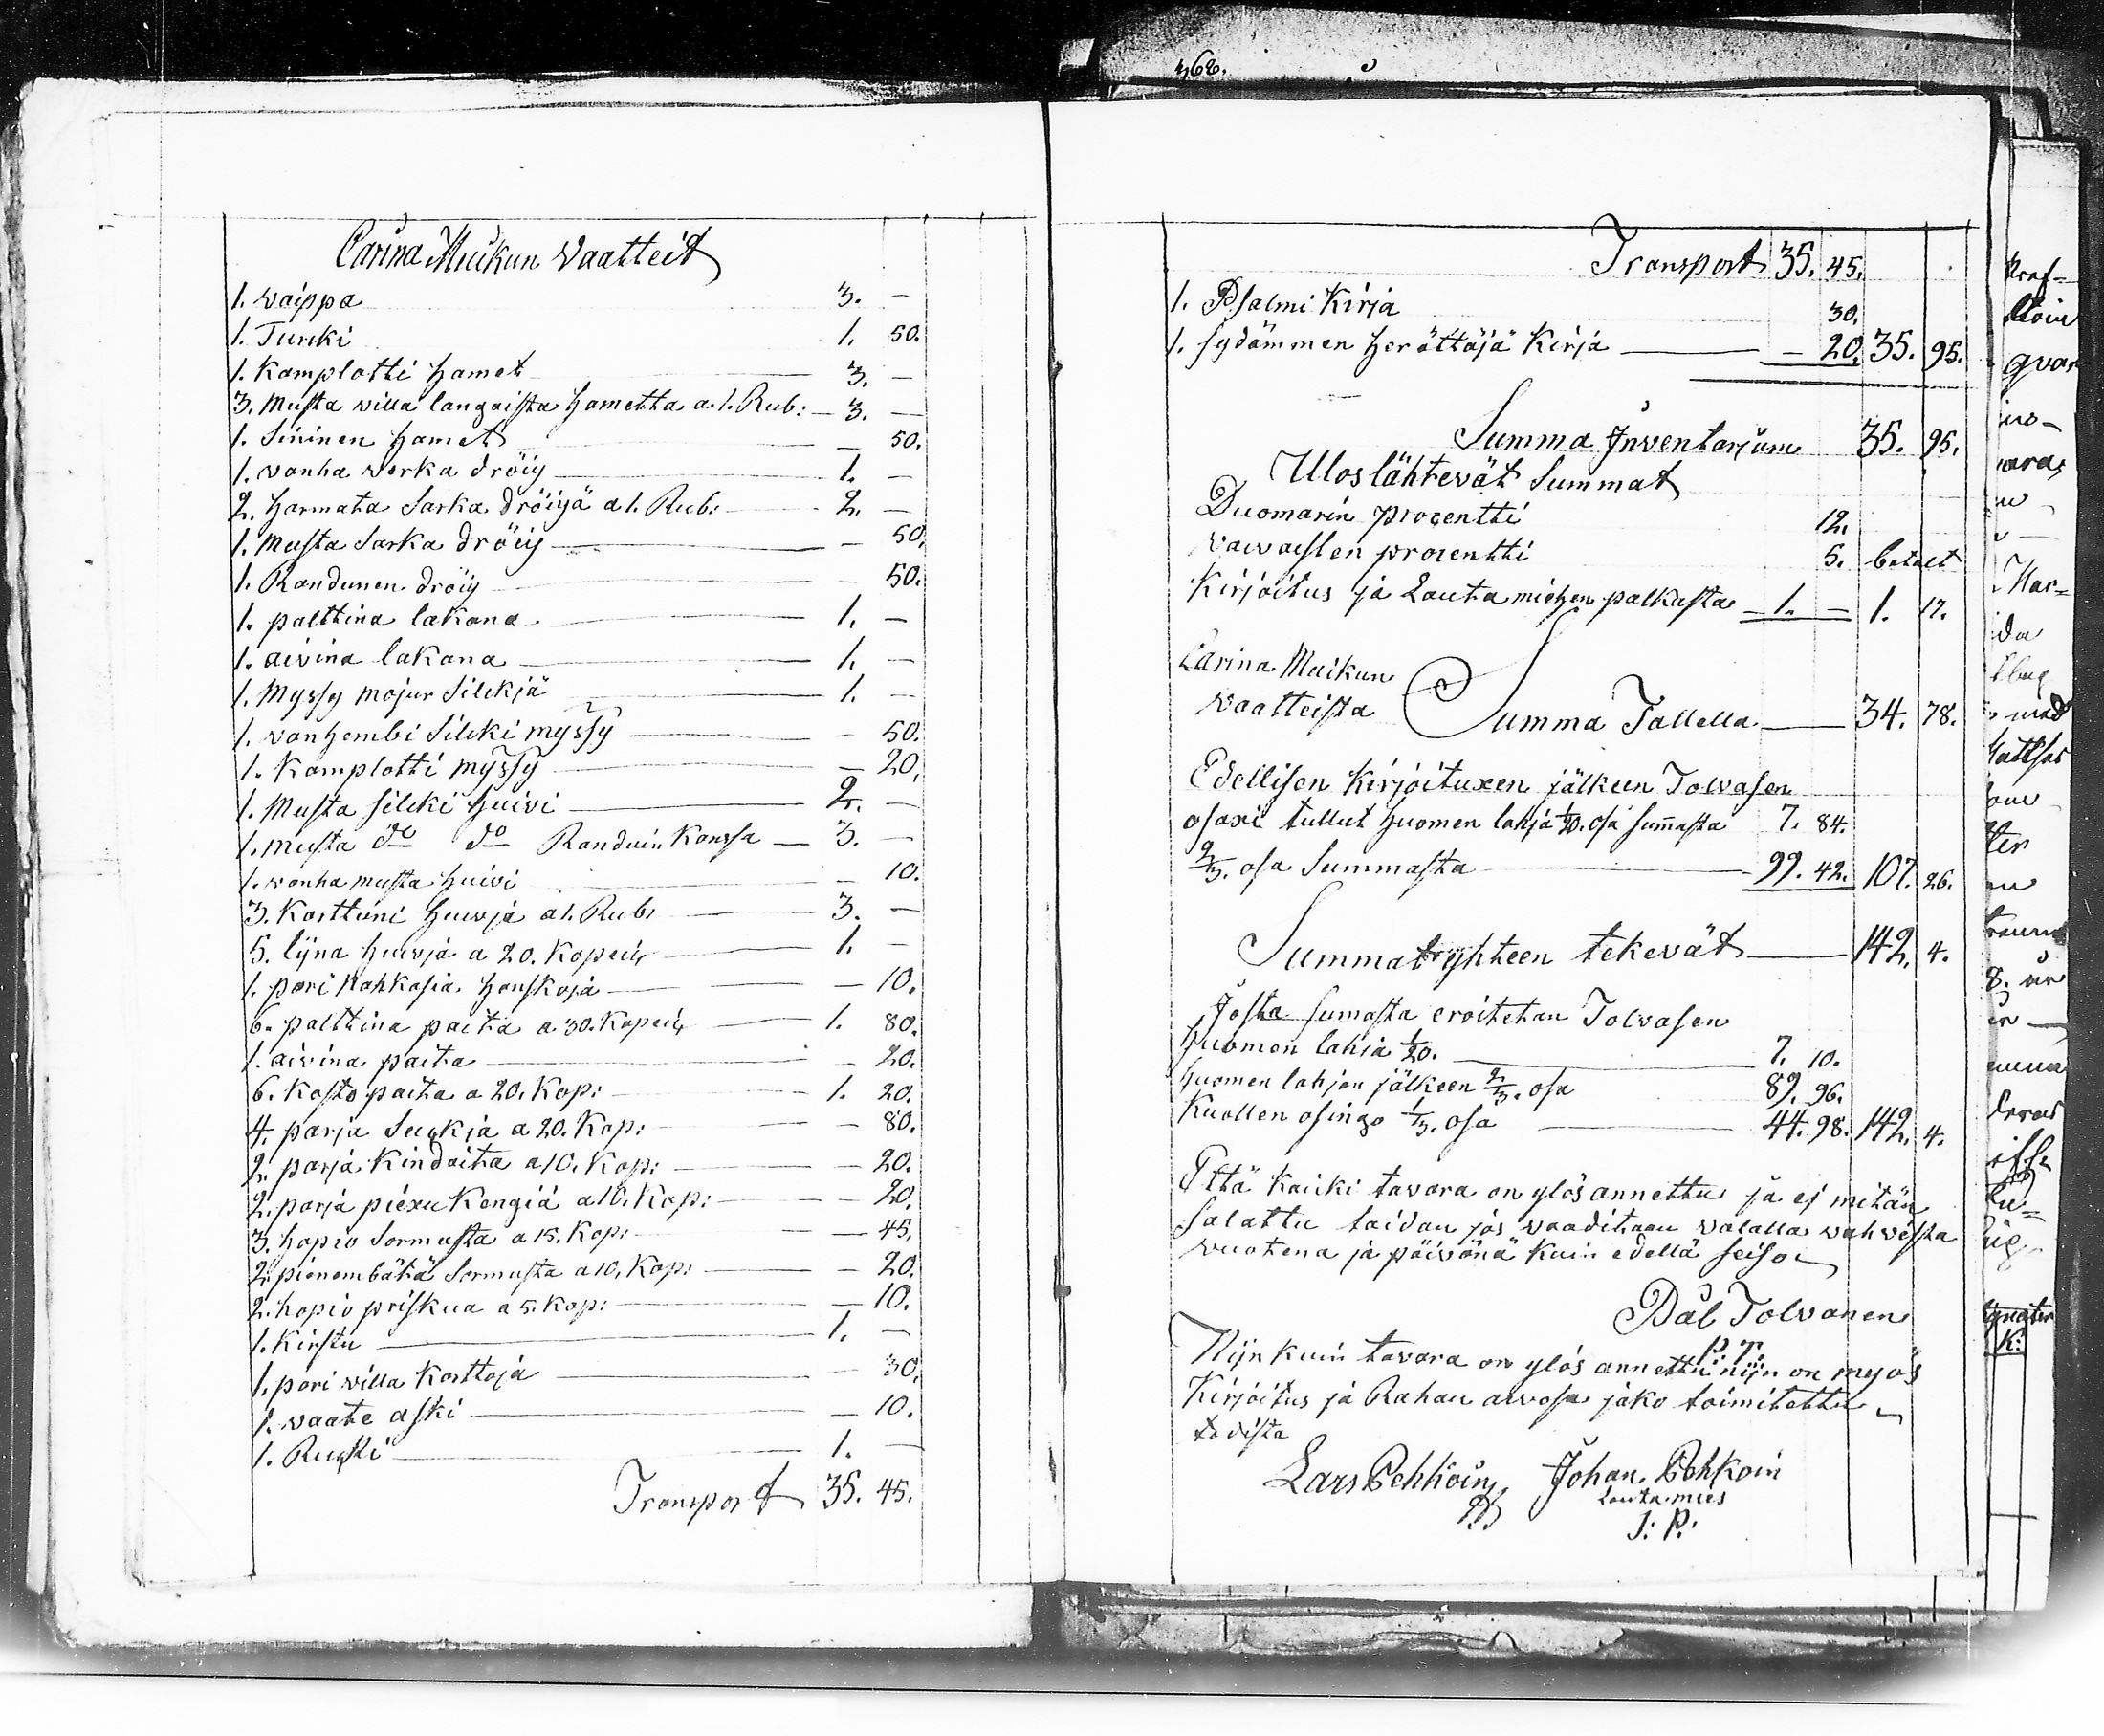 Carina Muikun Vaatteit
1. vaippa 3. —
1. Turcki 1. 50.
1. Kamplotti hamet 3. —
3. Musta willa langaista hametta a 1. Rub: — 3. —
1. Sininen hamet — 50.
1. vanha verka dröiy 1. —
2. harmata Sarka dröiyä a 1. Rub: 2. —
1. Musta Sarka dröiy — 50.
1. Randunen dröiy — 50.
1. palttina lakana 1. —
1. aivina lakana 1. —
1. Myssy mojur Silckjä 1. —
1. vanhembi Silcki myssy — 50.
1. Kamplotti myssy — 20.
1. Musta silcki huivi 2. —
1. musta do do Randuin Kanssa — 3. —
1. vanha musta huivi — 10.
3. Karttuni huivja a 1. Rub: 3. —
5. lijna huivja a 20. Kopeik 1. —
1. pari Nahkasia hanskoja — 10.
6. palttina paita a 30. Kopeik 1. 80.
1. aivina paita — 20.
6. Kasto paita a 20. Kop: 1. 20.
4. parja Suckja a 20. Kop: — 80.
2. parja Kindaita a 10. Kop: — 20.
2. parja piexu Kengiä a 10. Kop: — 20.
3. hopio Sormusta a 15. Kop: — 45.
2. pienembätä Sormusta a 10. Kop: — 20.
2. hopio priskua a 5. Kop: — 10.
1. Kirstu 1. —
1. pari villa Karttoja — 30.
1. vaate aski — 10.
1. Rucki 1. —
Transport 35. 45.
368.
Transport 35. 45.
1. Psalmi Kirja 30.
1. Sydämmen herättäjä Kirja — 20. 35. 95.
Summa Inventarium 35. 95.
Ulos lähtevät Summat
Duomarin procentti 12.
vaivaisten procentti 5. betalt
Kirjoitus ja Lautamiehen palkasta 1. — 1. 17.
Carina Muikun
vaatteista Summa Tallella 34. 78.
Edellisen Kirjoituxen jälkeen Tolvasen
osaxi tullut huomen lahja 1/20. osa summasta 7. 84.
2/3. osa Summasta 99. 42. 107. 26.
Summat yhteen tekevät 142. 4.
Josta sumasta eroitetan Tolvasen
huomen lahja 1/20. 7. 10.
huomen lahjan jälkeen 2/3. osa 89. 96.
Kuollen osingo 1/3. osa 44. 98. 142. 4.
Että Kaicki tavara on ylös annettu ja ej mitän
salattu taidan jos vaaditaan valalla vahvista
vuotena ja päivänä kuin edellä seiso
Pål Tolvanen
P. T.
Nijn kuin tavara on ylös annettu nijn on myös
Kirjoitus ja Rahan arvosa jako toimitettu
todista
Lars Pehkoin Johan Pehkoin
Lautamies
J: P: